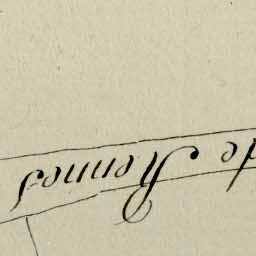 de Rennes